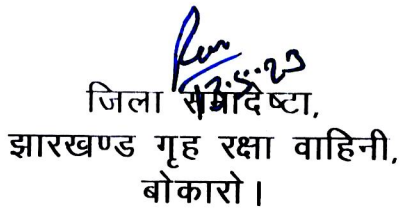 13.5.23
जिला समादेष्टा,
झारखण्ड गृह रक्षा वाहिनी,
बोकारो।